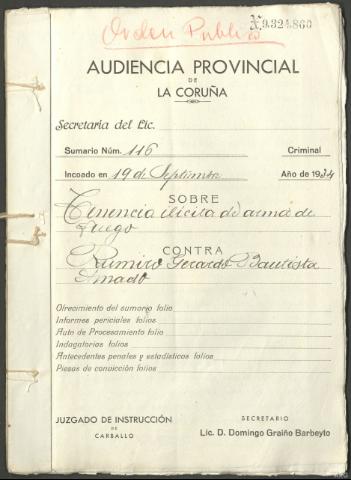 Orden Público
N.9.324.860
AUDIENCIA PROVINCIAL
DE
LA CORUÑA
Secretaría del Lic.
Sumario Núm. 116 Criminal
Incoado en 19 de Septiembre Año de 1934
SOBRE
Tenencia ilícita de arma de
fuego
CONTRA
Ramiro Gerardo Bautista
Amado
Ofrecimiento del sumario folio
Informes periciales folios
Auto de Procesamiento folio
Indagatorias folios
Antecedentes penales y estadísticos folios
Piezas de convicción folios
JUZGADO DE INSTRUCCIÓN
DE
CARBALLO
SECRETARIO
Lic. D. Domingo Graiño Barbeyto